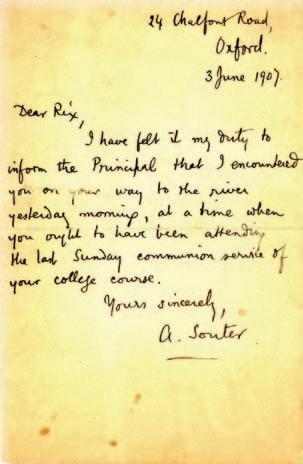 24 Chalfont Road,
Oxford.
3 June 1907.
Dear Rix,
I have felt it my duty to
inform the Principal that I encountered
you on your way to the river
yesterday morning, at a time when
you ought to have been attending
the last Sunday communion service of
your college course.
Yours sincerely,
A. Souter.